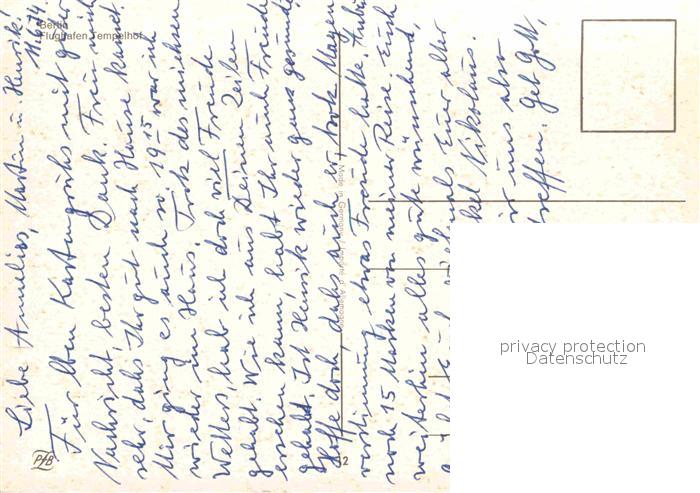 Berlin
Flughafen Tempelhof
11.6.74
Liebe Annelies, Martin u. Henrik!
Für Eben Kartengrüße mit guter
Nachricht, besten Dank. Freu mich
sehr, daß Ihr gut nach Hause kamt.
Mir ging es auch so. 19 15 war ich
wieder im Haus. Trotz des miesen
Wetters, hab ich doch viel Freude
gehabt. Wie ich aus Deinen Zeilen
ersehen kann, habt Ihr auch Freude
gehabt. Ist Henrik wieder ganz gesund,
Hoffe doch daß auch er, trotz Magen
verstimmung, etwas Freude hatte. Habe
noch 15 Marken von meiner Reise. Euch
weiterhin alles gute wünschend,
als Euer alter
Nikolaus.
wir uns also
treffen. Geb Gott,
Made in Germany / Imprimé d'Allemagne
PfB
12
privacy protection
Datenschutz